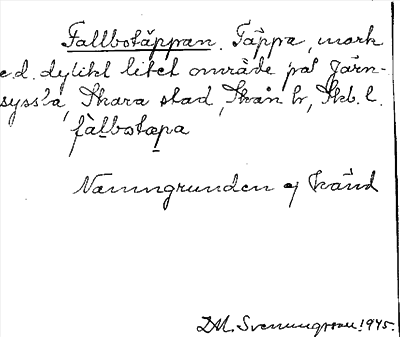 Fallbotäppan. Täppa, mark
e.d. dylikt litet område på Järn-
syssla, Skara stad, Skån hr, Skb. l.
fàlbotæpa
Namngrunden ej känd
D.M. Svenungsson 1945.